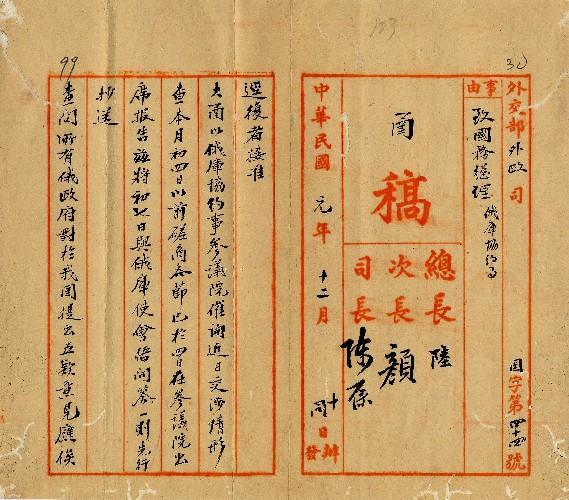 30
103
99
外交部外政司
事由
致國務總理 俄庫協約事
國字第四十四號
函
稿
總長 陸
次長 顏
司長 陳
中華民國元年十二月十日辦發
逕復者接准
大函以俄庫協約事參議院催詢近日交涉情形
查本月初四日以前磋商各節已於四日在參議院出
席報告茲將初七日與俄庫使會晤問答一則先行
抄送
查閱所有俄政府對於我國提出五款意見應俟